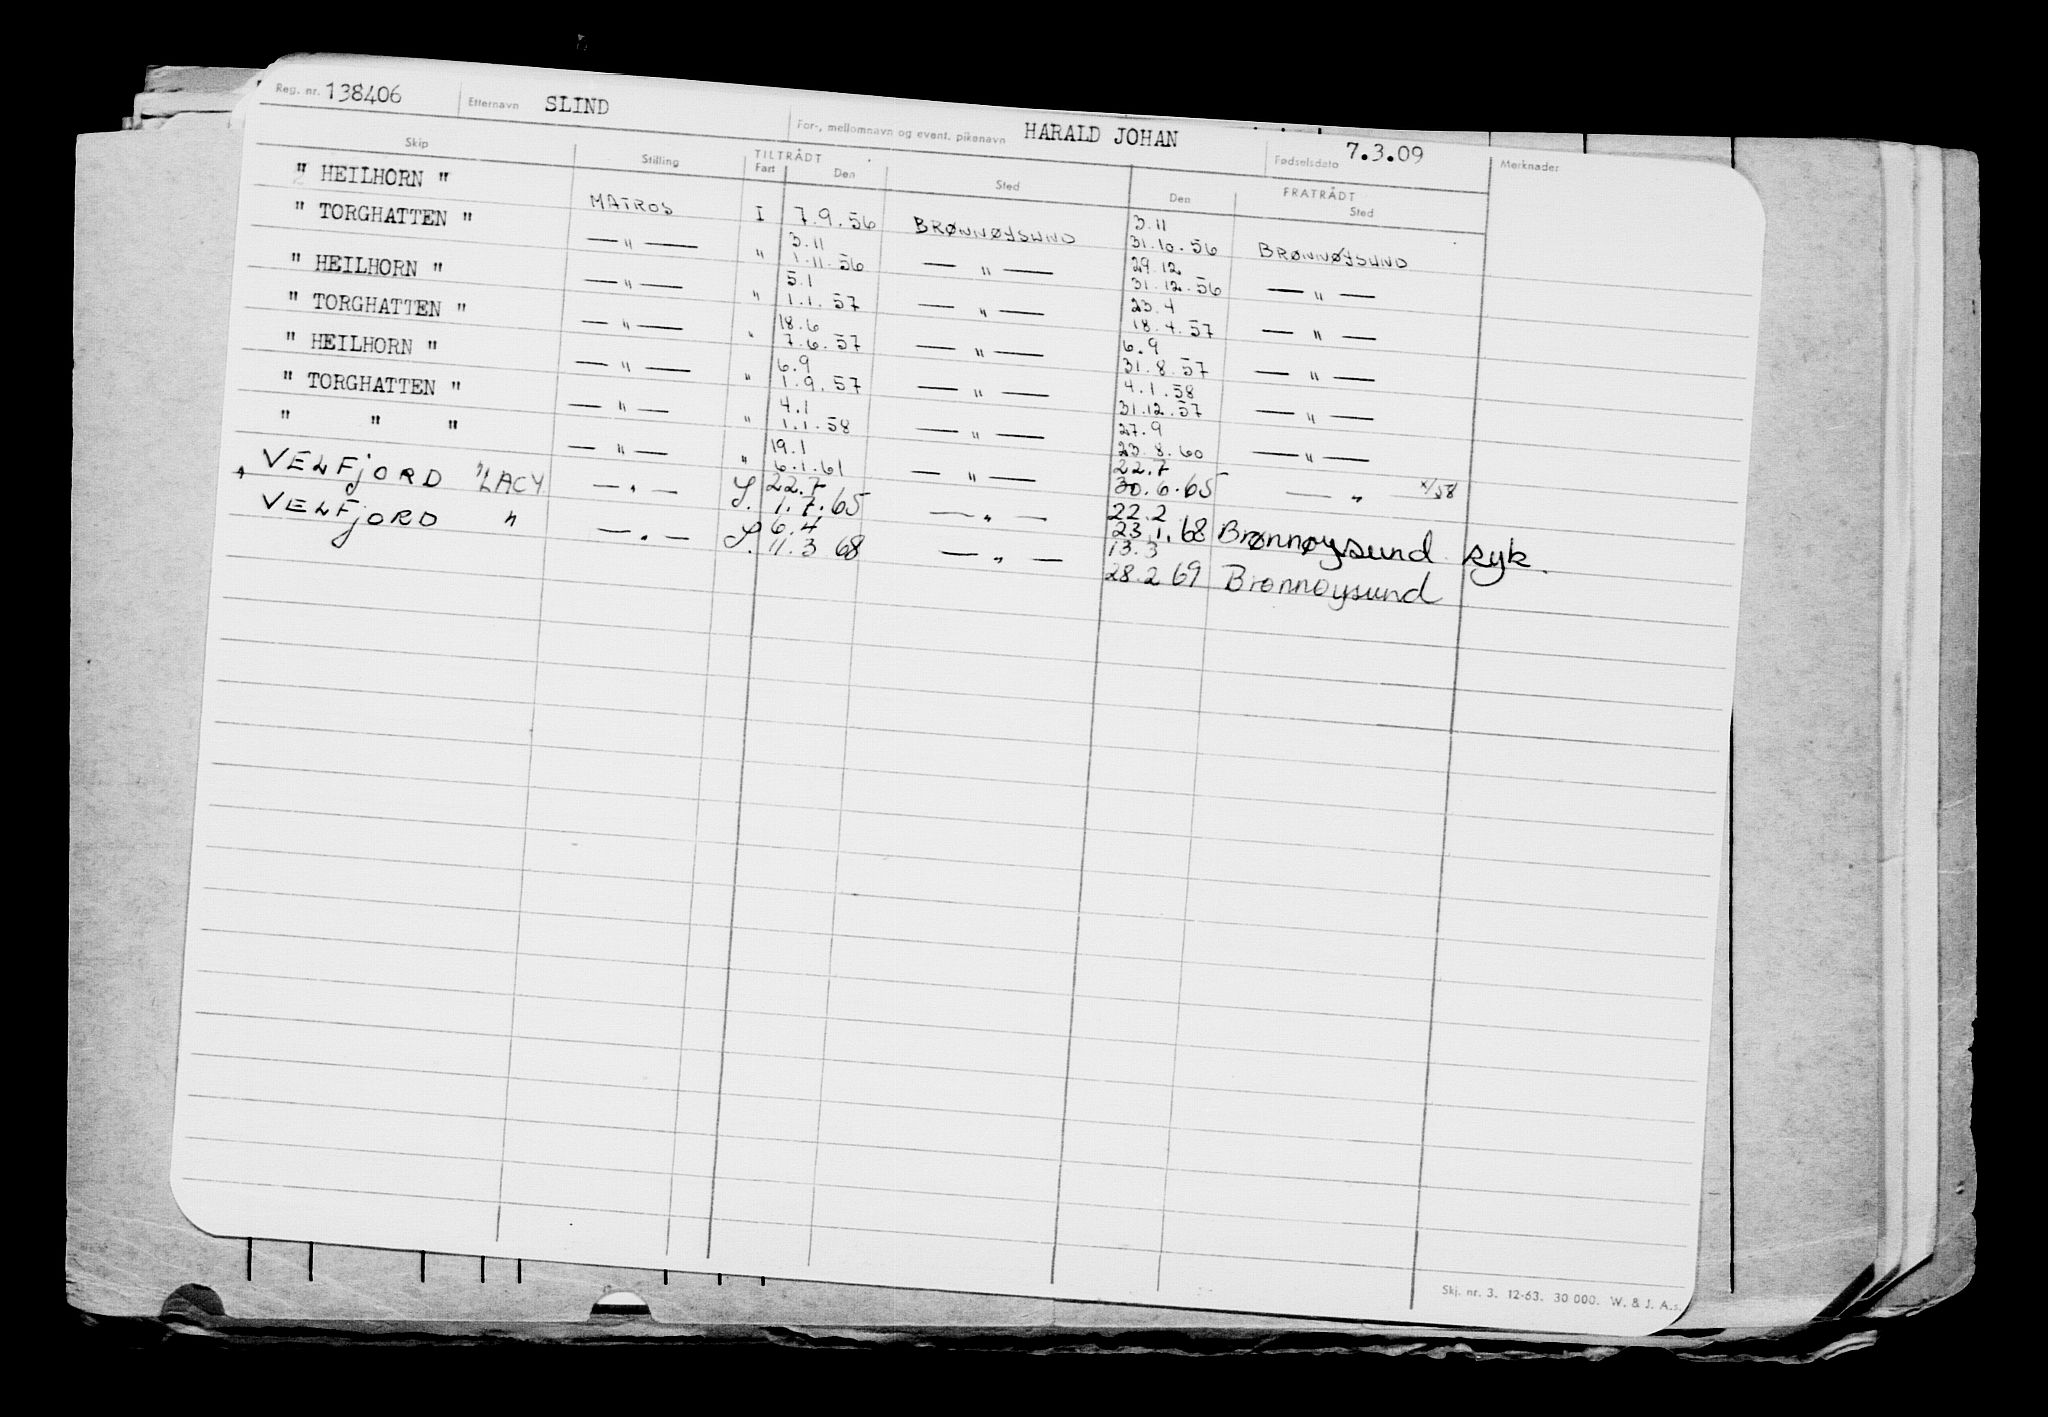 Reg. nr. 138406 Etternavn SLIND For-, mellomnavn og event. pikenavn HARALD JOHAN Fødselsdato 7.3.09 Merknader
Skip Stilling TILTRÅDT Fart Den Sted FRATRÅDT Den Sted
" HEILHORN " MATROS I 7.9.56 BRØNNØYSUND 3.11 31.10.56 BRØNNØYSUND
" TORGHATTEN " — " — " 3.11 1.11.56 — " — 29.12 31.12.56 — " —
" HEILHORN " — " — " 5.1 1.1.57 — " — 23.4 18.4.57 — " —
" TORGHATTEN " — " — " 18.6 7.6.57 — " — 6.9 31.8.57 — " —
" HEILHORN " — " — " 6.9 1.9.57 — " — 4.1.58 31.12.57 — " —
" TORGHATTEN " — " — " 4.1 1.1.58 — " — 27.9 23.8.60 — " —
" " " — " — " 19.1 6.1.61 — " — 22.7 30.6.65 — " — x/58
" VELFJORD "LACY — " — S. 22.7 1.7.65 — " — 22.2 23.1.68 Brønnøysund syk.
VELFJORD " — " — S. 6.4 11.3 68 — " — 13.3 28.2 69 Brønnøysund
Skj. nr. 3. 12-63. 30 000. W. & J. A.s.